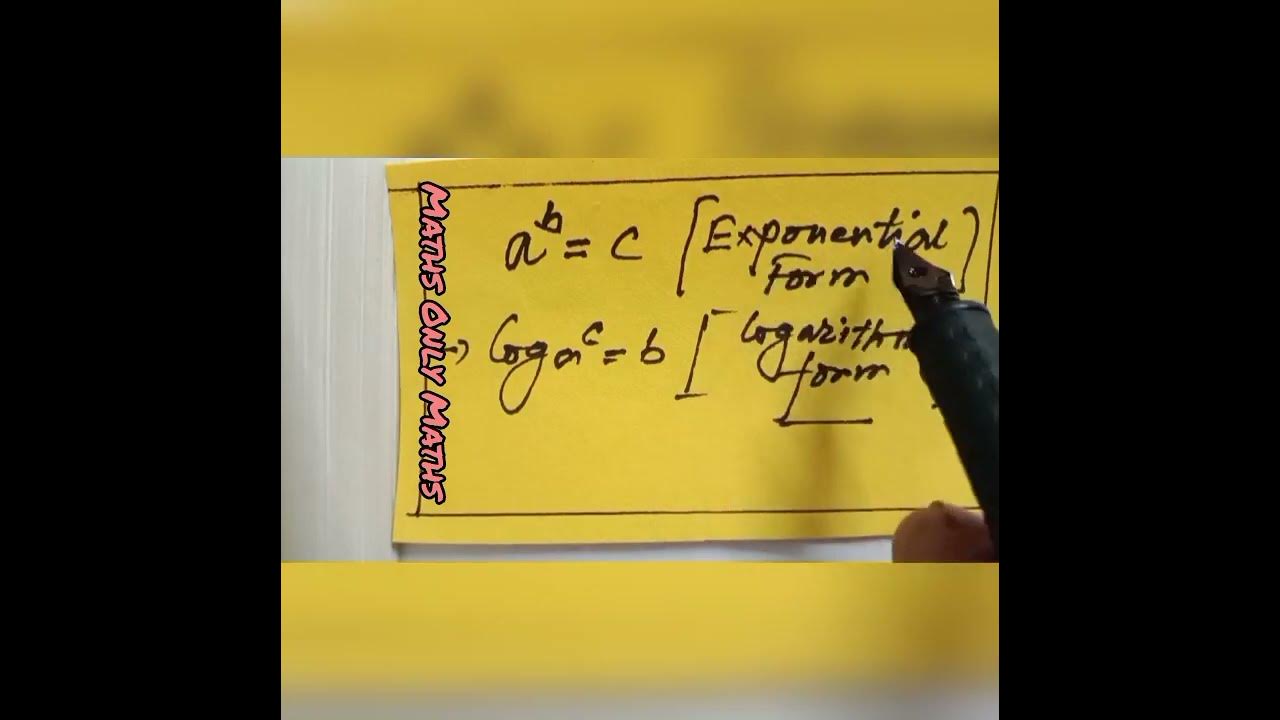 MATHS ONLY MATHS
aᵇ = c [Exponential
Form]
→ logₐc = b [logarithm
form